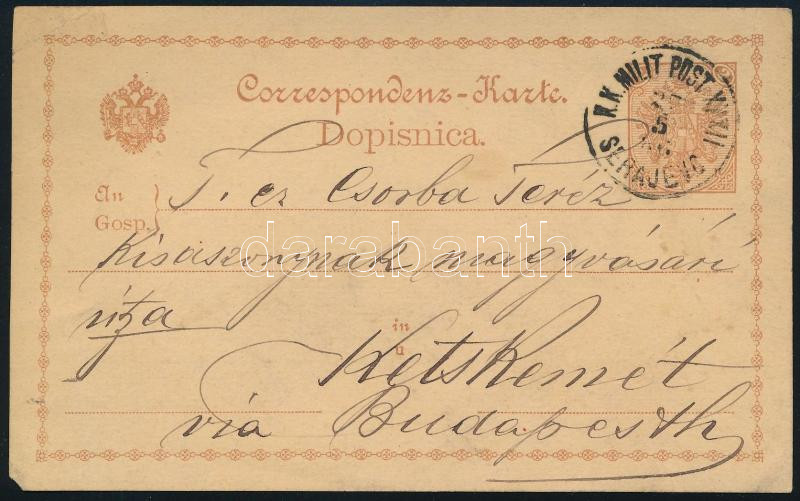 Correspondenz-Karte.
Dopisnica.
K.K. MILIT POST XXXII
SERAJEVO
An
Gosp.
T. cz Csorba Teréz
Kisaszonynak nagyvásári
útza
in
u
Ketskemét
via Budapesth
darabanth